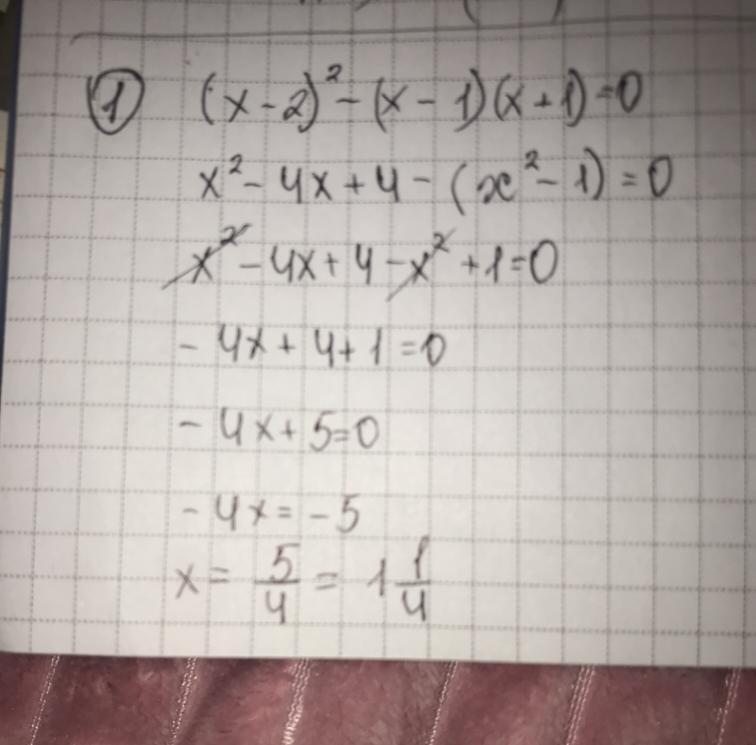 ① (x - 2)² - (x - 1)(x + 1) = 0
x² - 4x + 4 - (x² - 1) = 0
x² - 4x + 4 - x² + 1 = 0
- 4x + 4 + 1 = 0
- 4x + 5 = 0
- 4x = - 5
x = 5/4 = 1 1/4